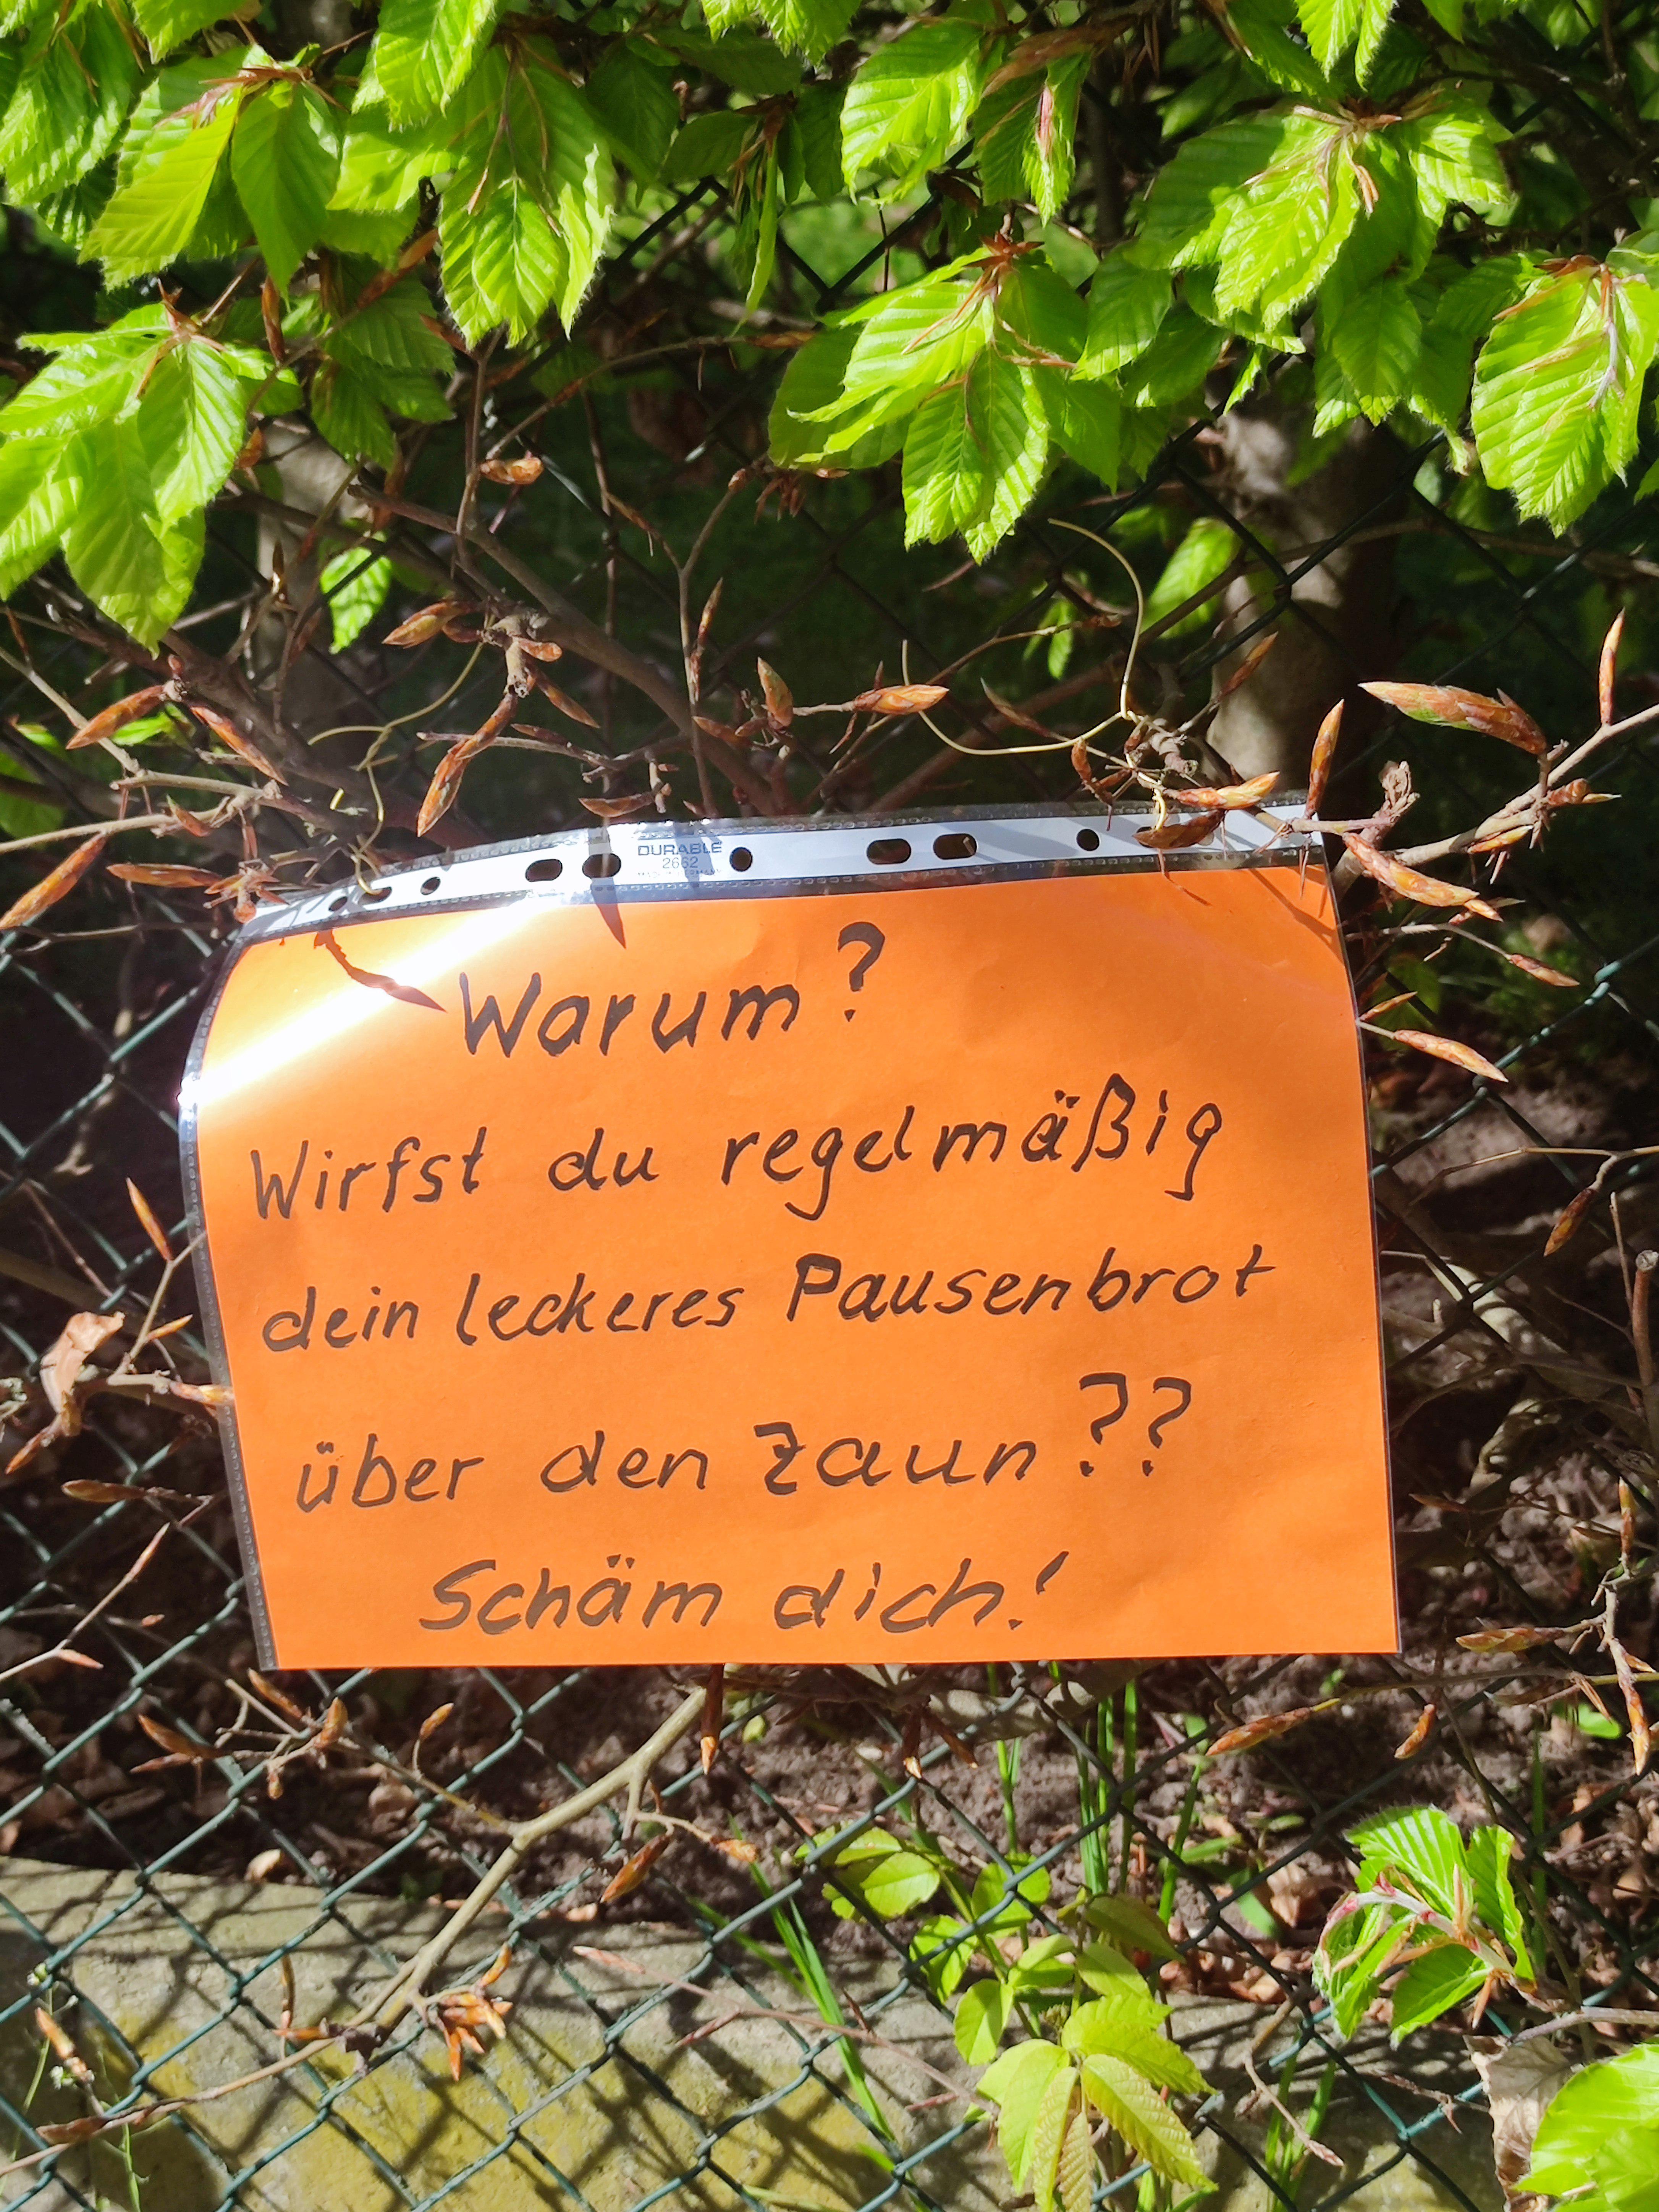 DURABLE
2662
Warum?
Wirfst du regelmäßig
dein leckeres Pausenbrot
über den Zaun??
Schäm dich!